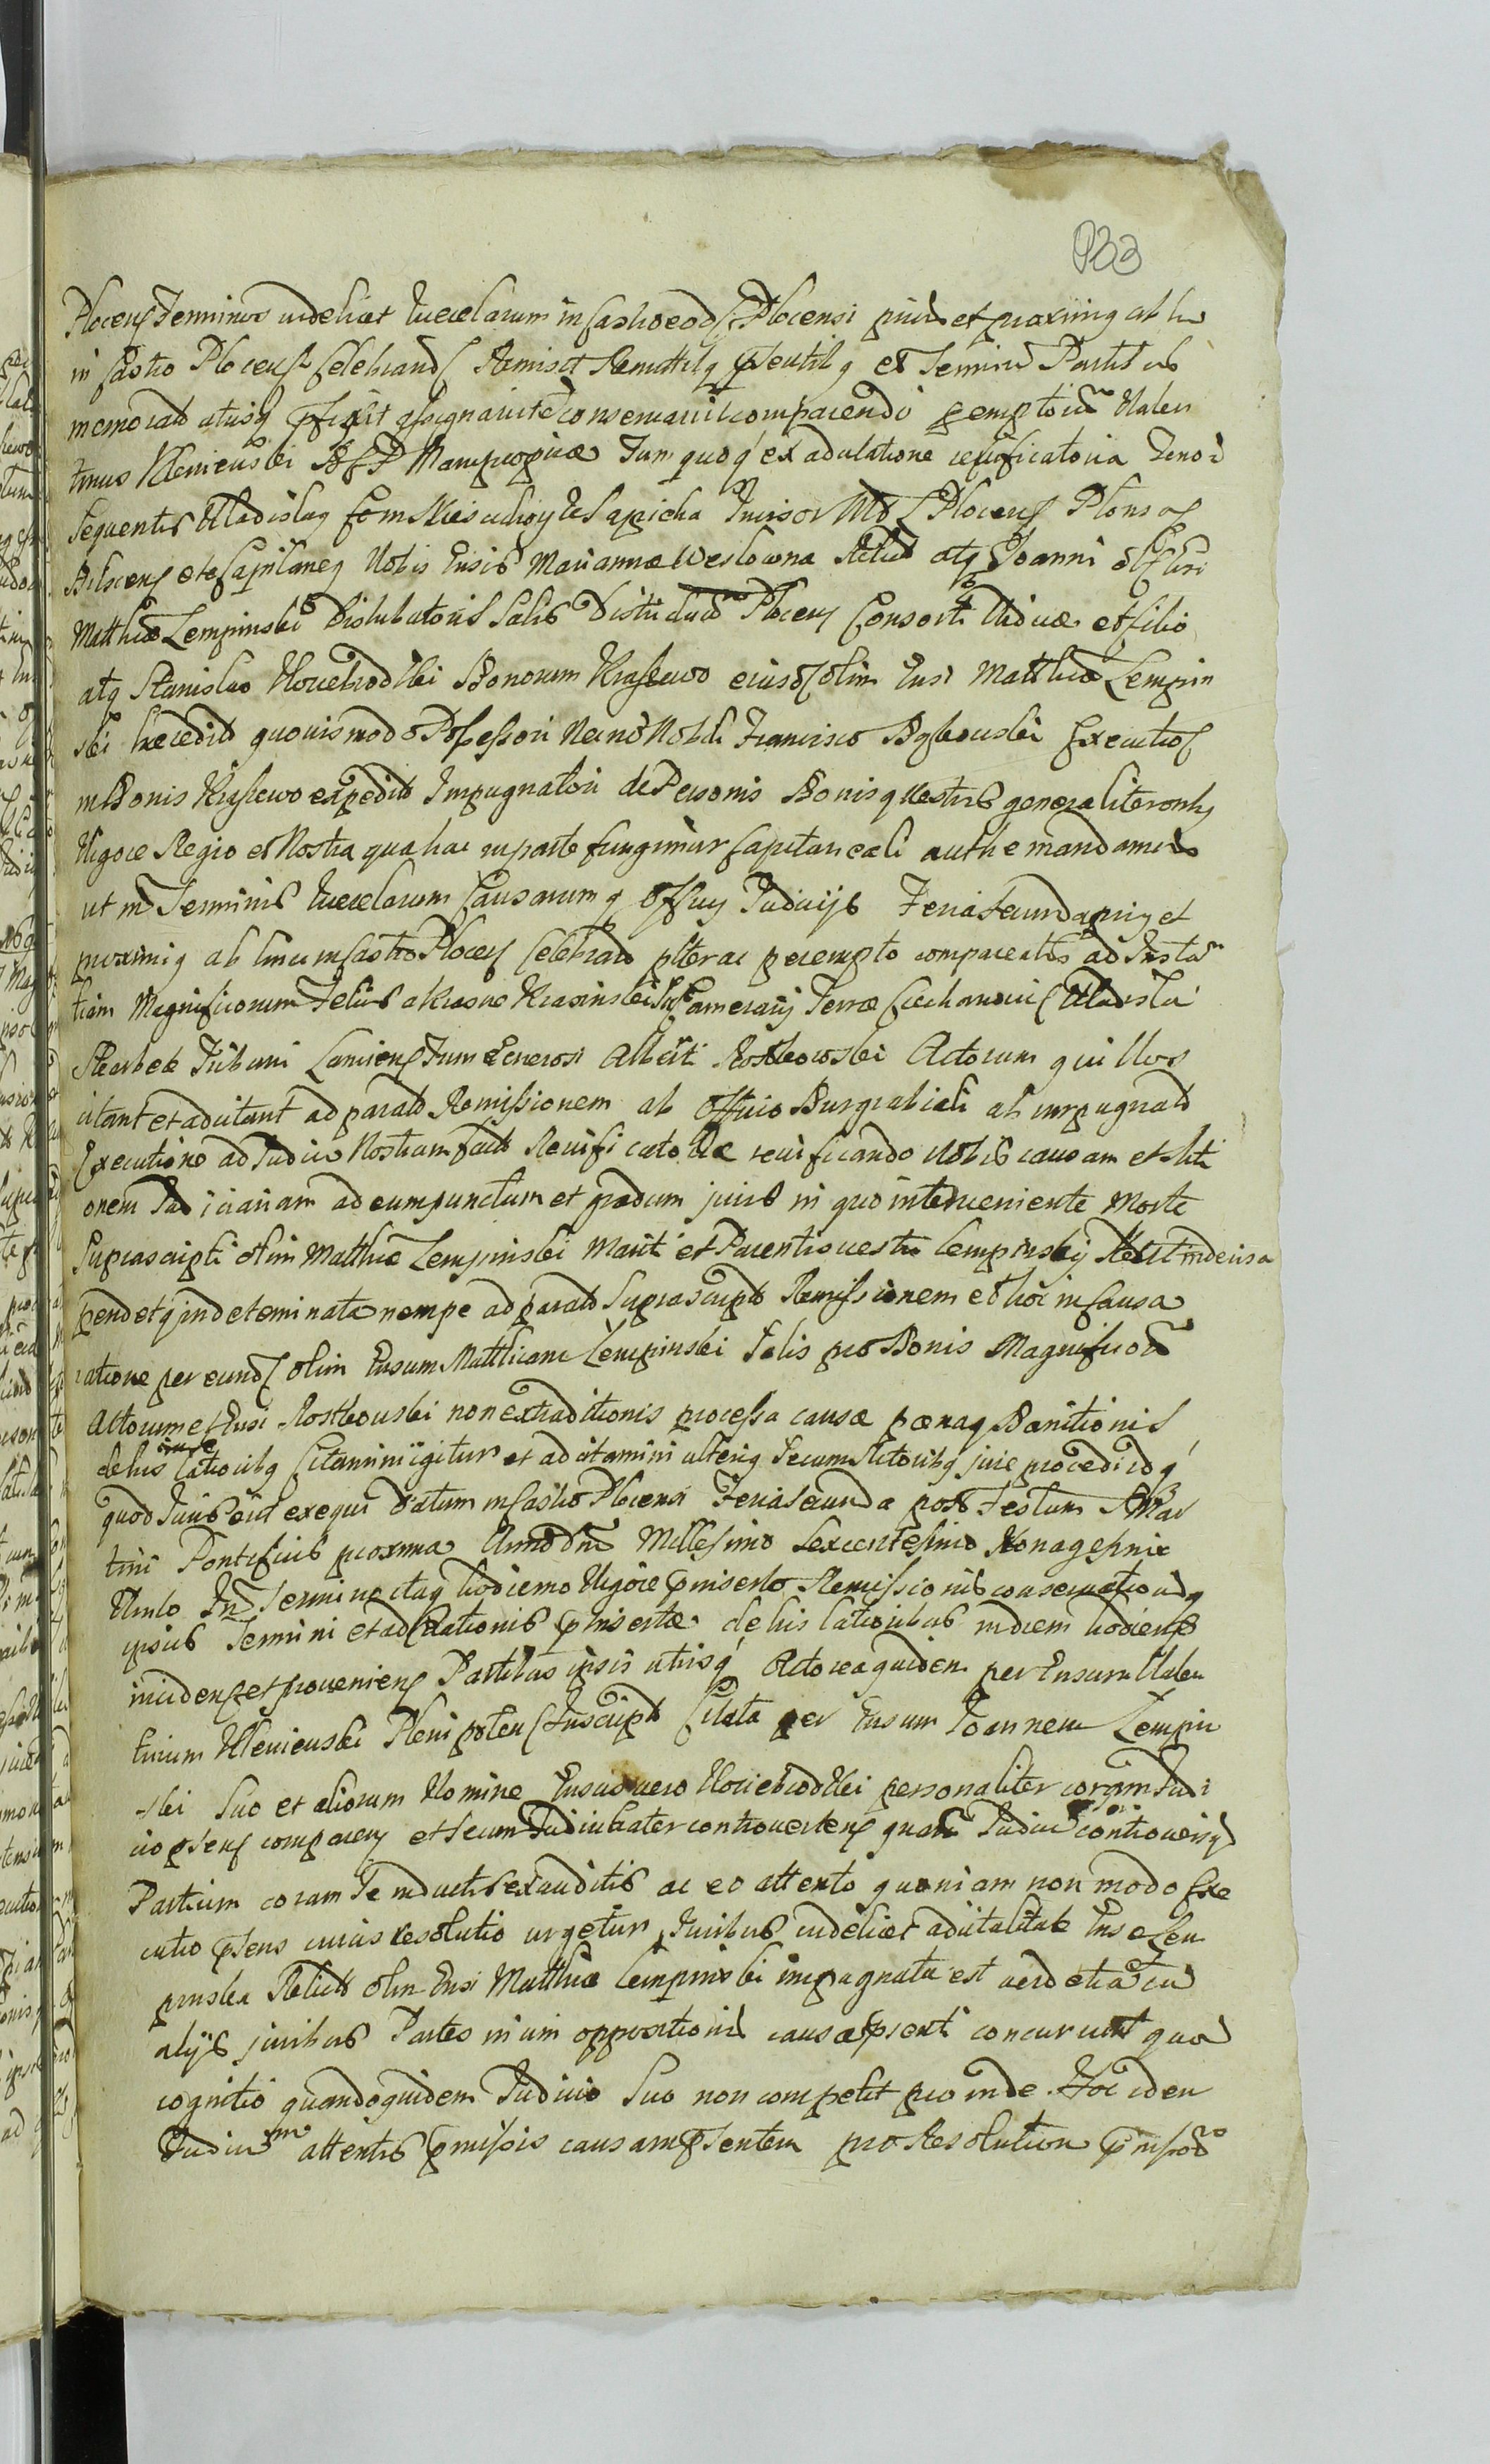 933
Plocens Terminos videlicet Querelarum in Castro eod Plocensi primis et proximiq ab hinc
in Castro Plocens Celebrand Remisit Remittitq pntibq et Terminu Partibus
memoratis utrisq pfixit assignavit et conservavit comparendi peremptorie Valen
tinus Kleniewski AffP Manu propria Tum quoq ex adcitatione reificatoria Tenoris
Sequentis Vladislaq Comes Sapieha Incisor MDL Plocens Plonsc
Bilscens etc Capitaneq Vobis Gnsis Marianna Weslowna Relicta atq Joanni olim Gnsi
Matthiæ Lempinski Distributoris Salis Districtus Plocens Consorti Viduæ et filio
atq Stanislao Nowebrodzki Bonorum Krassewo eiusd olim Gnsi Matthiæ Lempin
ski hæredit quovismodo Possessori Necno Nobili Francisco Executio
in Bonis Krassewo expedit Impugnatori de Personis Bonisq Vestris generaliter omnibq
Vigore Regio et Nostra qua hac in parte fungimur Capitaneali authe mandamus
ut in Terminis Querelarum Causarumq Officij Judicijs Feria Secunda primiq et
proximiq ab hinc in Castro Plocens Celebrand pliter ac perempto compareatis ad Instan
tiam Magnificorum Felicis a Krasne Krasinski Succamerarij Terræ Ciechanovien Vladislai
Skarbek Tribuni Lancicens Tum Generosi Alberti Rostkowski Actorum qui Vos
citant et adcitant ad parato Remissionem ab Officio Burgrabiali ab impugnato
Executione ad Judiciu Nostrum facto Reificato De reificando Vobis causam et Acti
onem Judiciariam ad eumpunctum et gradum juris in quo interveniente Morte
Suprascripti olim Matthiæ Lempinski Mariti et Parentis vestri Lempinsky Relict indecisa
pendetq indeterminata nempe ad parato Suprascripto Remissionem et hoc in Causa
ratione per eund olim Gnsum Matthiam Lempinski Salis pro Bonis Magnificor
Actorum et Gnsi Rostkowski non extraditionis processa causæ pænaq Banitionis
de his latioribq Citamini igitur et adcitamini ulteriq Secum Actoribq jure procedi idq
quod Juris erit exequi Datum in Castro Plocensi Feria Secunda post Festum S Mar
tini Pontificis proxima Anno Dni Millesimo Sexcentesimo Nonagesimo
In Termino itaq hodierno Vigore pinserto Remissionis conservationisq
ipsius Termini et ad Citationis pinsertæ de his latioribus in diem hodiernu
inciden et provenien Partibus ipsis utrisq Actorea quidem per Gnsum Valen
tinum Kleniewski Plenipoten Suscript Citata per Gnsum Joannem Lempin
ski Suo et aliorum Nomine Gnsus vero Nowebrodzki personaliter coram Judi
cio ptens comparens et Secum Judicialiter controvertens quaru Judiciu controversijs
Partium coram Se inductis exauditis ac eo attento quoniam non modo Exe
cutio ptens cuius resolutio urgetur Juribus videlicet advitalitate Gnsæ Lem
pinska Relict olim Gnsi Matthiæ Lempinski impugnata est verù etiam cu
alijs juribus Partes in vim oppositionis causæ psenti concurrunt quar
cognitio quandoquidem Judicio Suo non competit proinde Hoc idem
Judiciu attentis pmissis causam psentem pro Resolutione pmissor